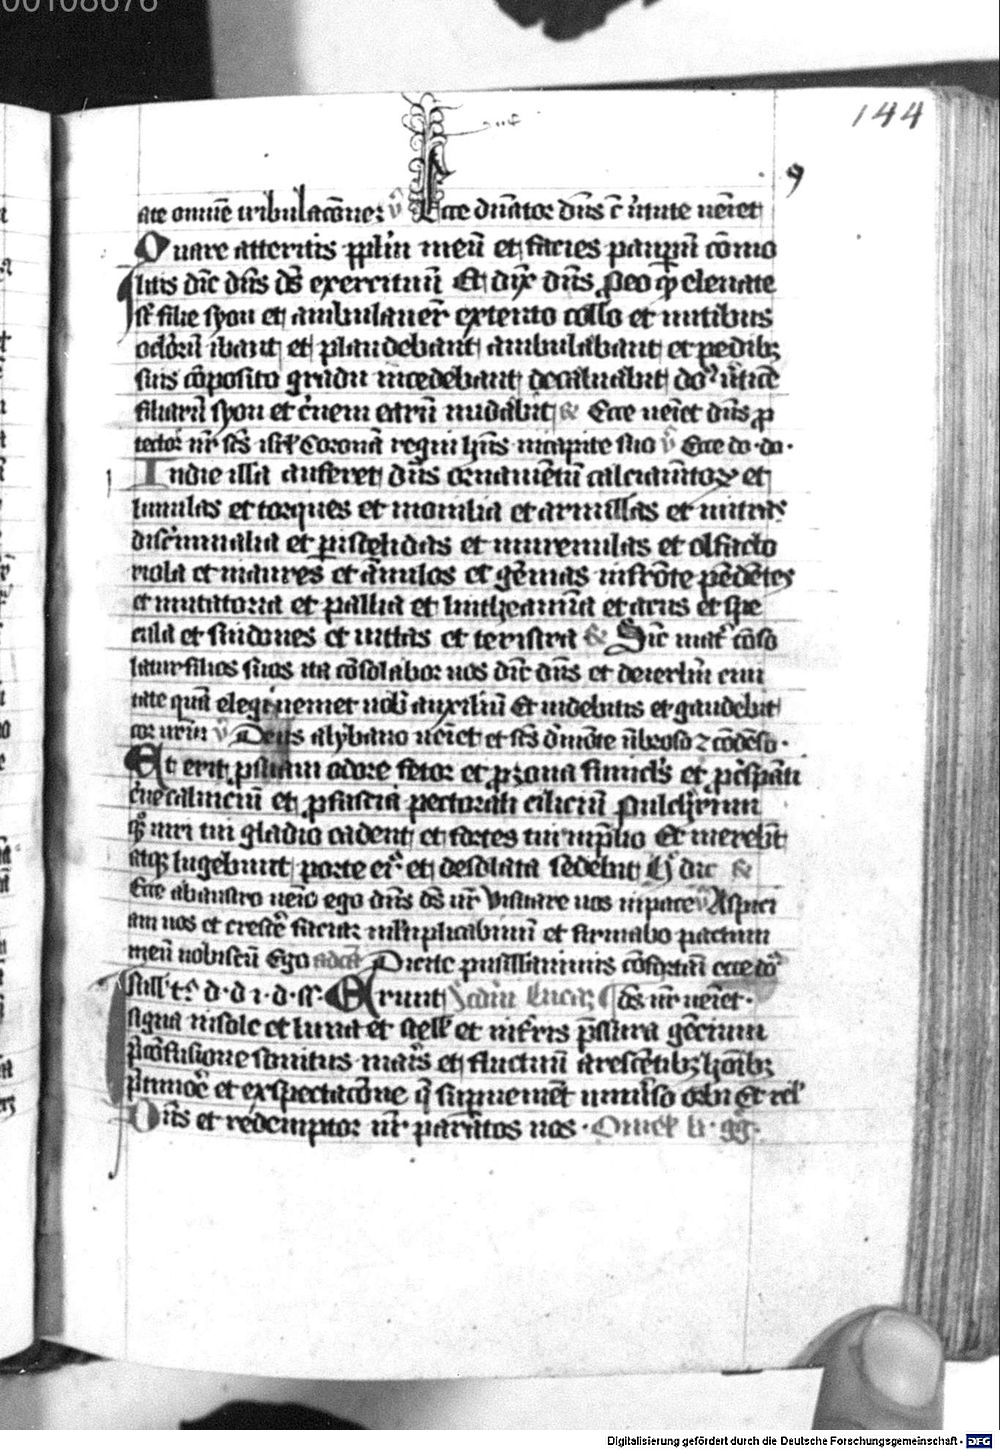 00108676
144
9
ate omnē tribulacōneʒ ꝟ Ecce dn̄ator dn̄s c̄ ѵ̄tute veīet
Quare atteritis ppl̄m meū et facies pauꝑū cōmo
litis dīc dn̄s dс̄ exercituū Et dix̄ dn̄s ꝓeo ꝙ eleuate
st̄ filie syon et ambulauer̄ extento collo et nutibus
oclōrū ibant et plaudebant ambulabant et pedibꝫ
suis cōposito gradu incedebant decaluabit do᷑ v̄ticē
filiarū syon et c̄nem earū nudabit & Ecce veīet dn̄s ꝓ
tector nr̄ sc̄s isrl̄ Coronā regni hn̄s incapite suo ꝟ Ecce do·do·
In die illa auferet dn̄s ornamētū calciamētoꝝ et
lunulas et torques et monilia et armillas et mitras
discīminalia et ꝑistelidas et murenulas et olfacto
riola et inaures et ānulos et gēmas infrōte pēdētes
et mutatoria et pallia et lintheamīa et acus et spe
cula et sindones et vittas et teristra & Sic mat̄ cōso
latur filios suos ita cōsolabor vos dīc dn̄s et deierl̄m ciui
tate quā elegi veniet vob̄ auxiliū Et videbitis et gaudebit
cor vr̄m ꝟ Deus alybano veīet et sc̄s d̄mōte ūbroso ⁊ cōdēso·
Et erit ꝓsuaui odore fetor et ꝓzona funicl̄s et ꝓc̄spāti
c̄ne caluiciū et ꝓfascia pectorali ciliciū Pulch̄rimi
qꝫ viri tui gladio cadent et fortes tui īp̄lio Et mereb̄t
atqꝫ lugebunt porte ei᷑ et desolata sedebit H̄ dīc &
Ecce abaustro veīo ego dn̄s dс̄ vr̄ Visitare vos inpace ꝟ Aspici
am vos et cresce᷑ faciaꝫ mltiplicabimī et firmabo pactum
meū vobiscū Ego adcā Dicite pusillanimis cōfortāī ecce dō
Erunt Scdm Lucā dс̄ nr̄ veīet·
signa insole et luna et stell̄ et int̄ris p̄ssura gēcium
p̄cōfusione sonitus maris et fluctuū arescētibꝫ hōībꝫ
p̄timoē et exspectacōne q̄ suꝑuenēt vniu̇so orbi Et rel̄
Dn̄s et redemptor nr̄ parītos nos· Omel̄ b· gḡ
Digitalisierung gefördert durch die Deutsche Forschungsgemeinschaft - DFG